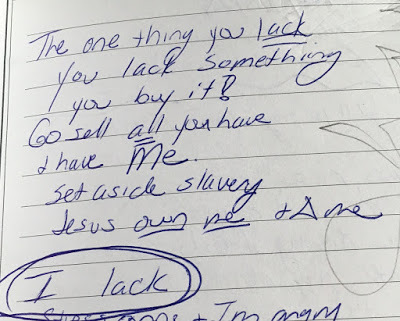 The one thing you lack
You lack something
you buy it!
Go sell all you have
+ have Me.
set aside slavery
Jesus own me + Δ me
I lack
+ I'm angry